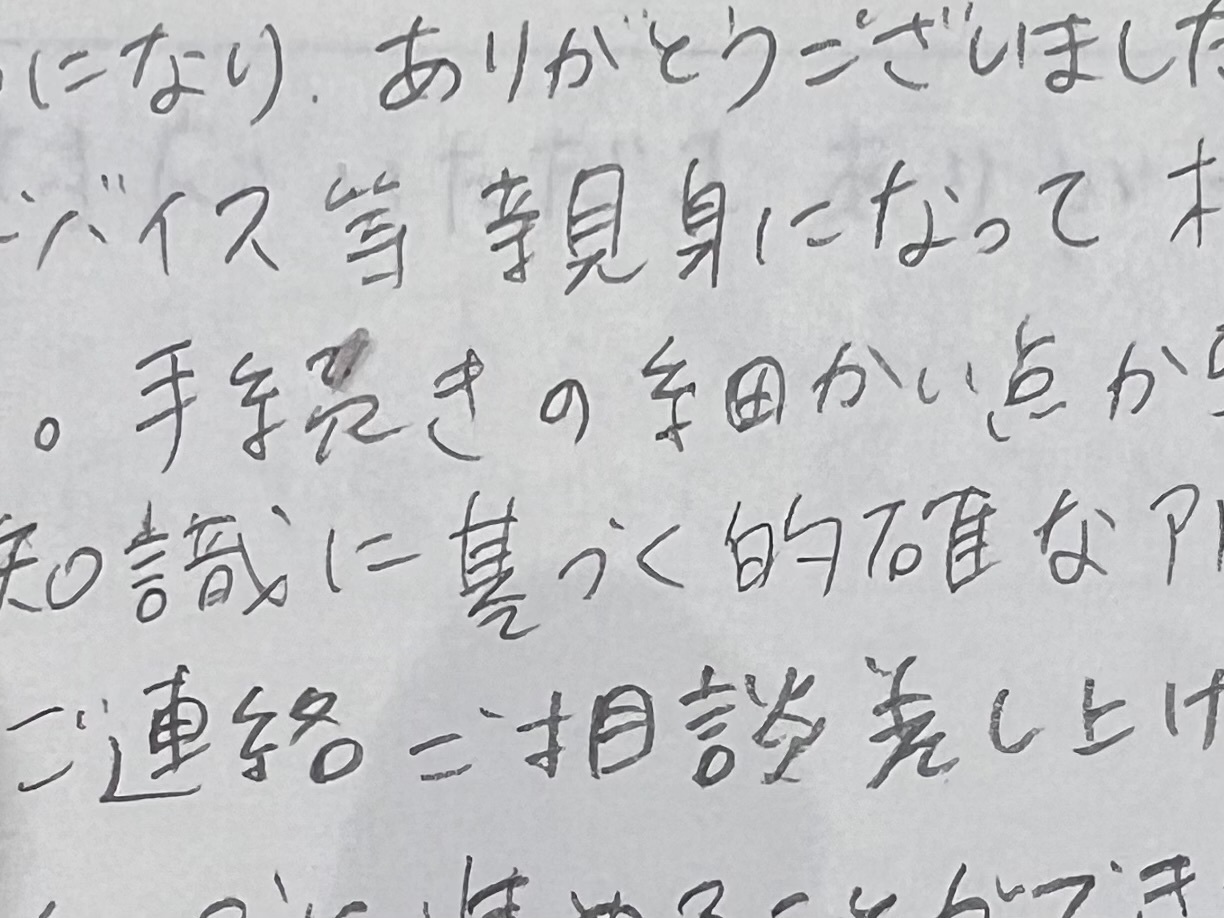 になり、ありがとうございました
バイス等親身になって
。手続きの細かい点か
知識に基づく的確な
ご連絡ご相談差し上げ
に進めることができ